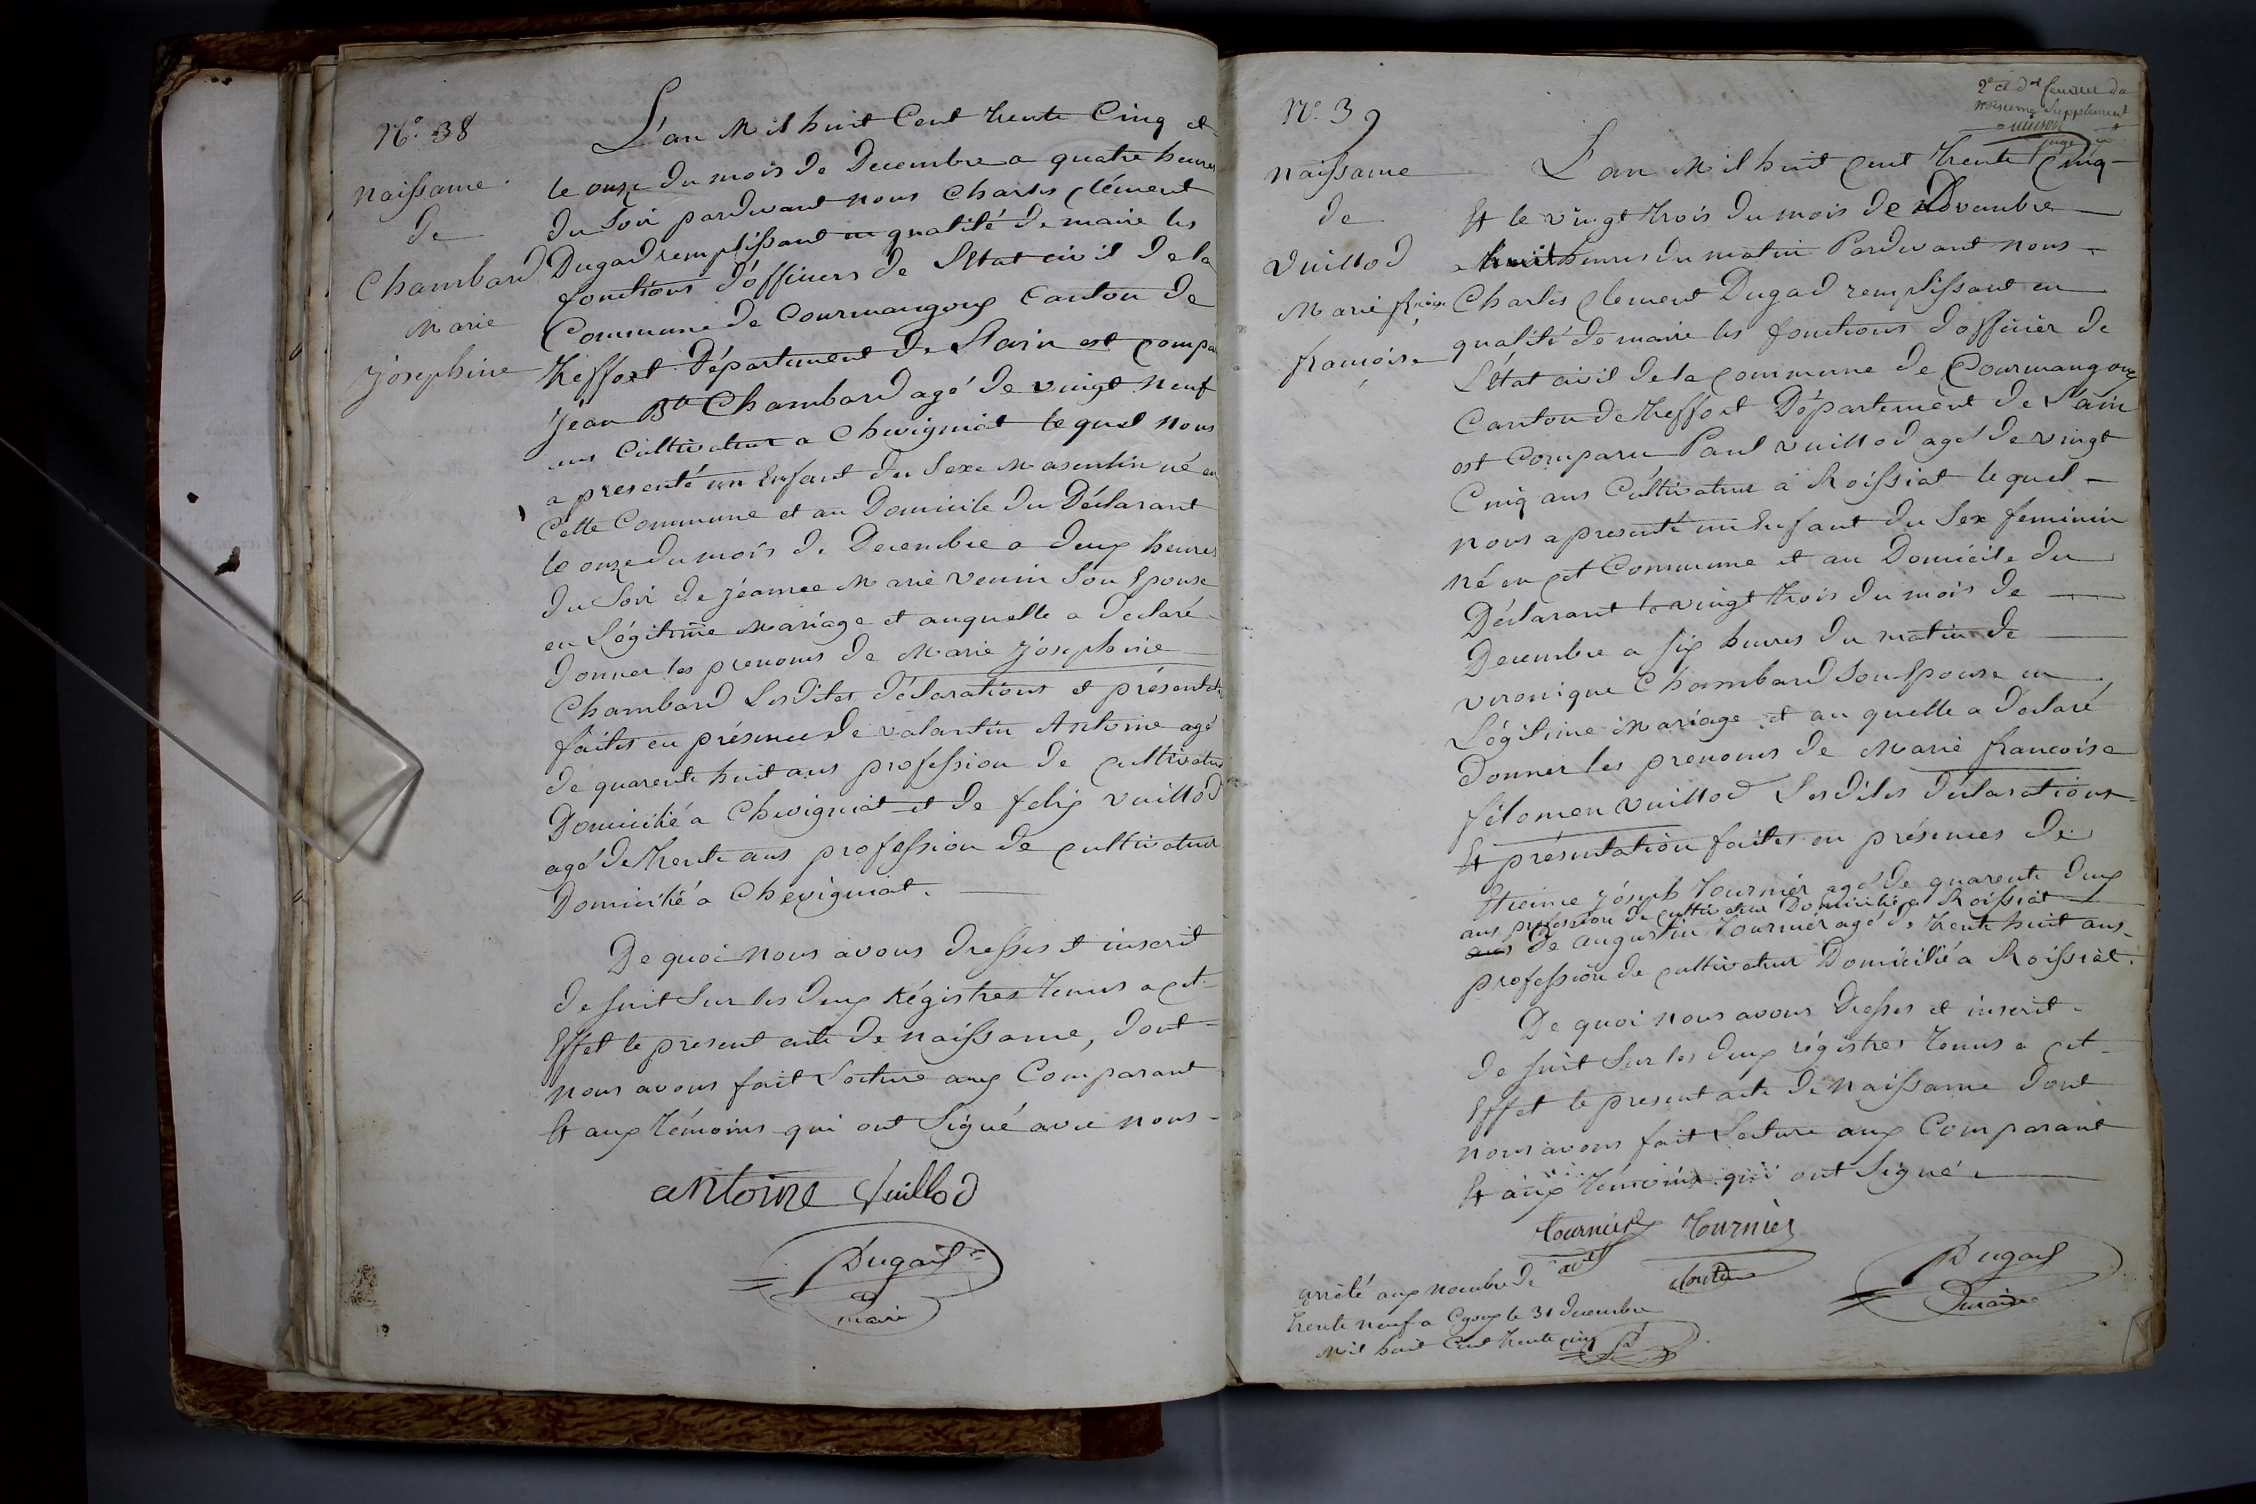 N.º 38
naissance
de
Chambard
Marie
joséphine
L'an Mil huit Cent trente Cinq et
le onze du mois de Decembre a quatre heures
du Soir pardevant nous Charles Clément
Dugad remplissant en qualité de maire les
fonctions d'officiers de L'état civil de la
Commune de Courmangoux Canton de
treffort Département de L'ain est compa
jean Bte Chambard agé de vingt neuf
ans Cultivateur a Chevigniat le quel nous
a presenté un Enfant du Sexe Masculin né en
Cette Commune et au Domicile du Déclarant
le onze du mois de Decembre a deux heures
du Soir de jeanne Marie venin Son Epouse
en Légitime Mariage et auquelle a declaré
donner les prenoms de Marie joséphine
Chambard Lesdites déclarations et présentation
faites en présences de valantin Antoine agé
de quarente huit ans profession de cultivateur
Domicilié a Chevigniat et de felix vuillod
agé de trente ans profession de cultivateur
Domicilié a Chevigniat.
De quoi nous avons dresses et inscrit
de suit Sur les deux Régistres tenus a cet
Effet le present acte de naissance, dont
nous avons fait Lecture aux Comparant
Et aux témoins qui ont Signé avec nous
antoine Vuillod
Dugad
maire
N.º 39
naissance
de
vuillod
Marie
francoise
L'an Mil huit Cent trente Cinq
Et le vingt trois du mois de Novembre
a huit heures du matin Pardevant nous
Charles Clement Dugad remplissant en
qualité de maire les fonctions d'officier de
L'état civil de la Commune de Courmangoux
Canton de treffort Département de L'ain
est Comparu Paul vuillod agé de vingt
Cinq ans Cultivateur a Roissiat le quel
nous a presenté un Enfant du Sexe feminin
né en cet Commune et au Domicile du
Déclarant le vingt trois du mois de
Decembre a six heures du matin de
veronique Chambard Son Epouse en
Légitime Mariage et au quelle a declaré
donner les prenoms de Marie francoise
filomen vuillod Lesdites déclarations
Et présentation faites en présences de
Etienne joseph tournier agé de quarente deux
ans profession de cultivateur Domicilié a Roissiat
de augustin tournier agé de trente huit ans
profession de cultivateur Domicilié a Roissiat.
De quoi nous avons dresses et inscrit
de suit Sur les deux régistres tenus a cet
Effet le present acte de naissance dont
nous avons fait Lecture aux Comparant
Et aux témoins qui ont Signé
tournier tournier
Dugad
maire
arrêté aux nombre de
trente neuf a Cgoux le 31 decembre
Mil huit Cent trente cinq D